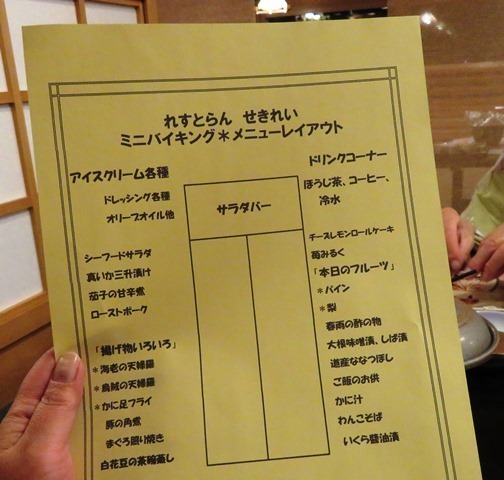 れすとらん　せきれい
ミニバイキング＊メニューレイアウト
アイスクリーム各種
ドレッシング各種
オリーブオイル他
シーフードサラダ
真いか三升漬け
茄子の甘辛煮
ローストポーク
「揚げ物いろいろ」
＊海老の天婦羅
＊烏賊の天婦羅
＊かに足フライ
豚の角煮
まぐろ照り焼き
白花豆の茶碗蒸し
サラダバー
ドリンクコーナー
ほうじ茶、コーヒー、
冷水
チーズレモンロールケーキ
苺みるく
「本日のフルーツ」
＊パイン
＊梨
春雨の酢の物
大根味噌漬、しば漬
道産ななつぼし
ご飯のお供
かに汁
わんこそば
いくら醤油漬